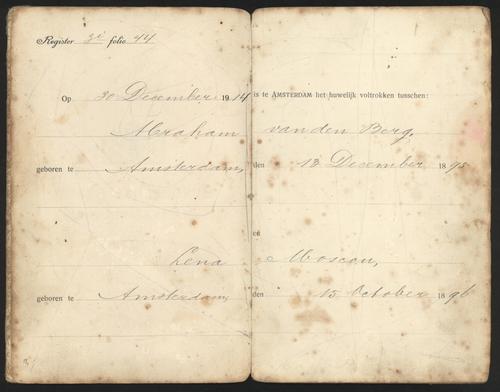 Register 3i folio 44
Op 30 December 1914 is te AMSTERDAM het huwelijk voltrokken tusschen:
Abraham van den Berg,
geboren te Amsterdam, den 18 December 1895
en
Lena Moscou,
geboren te Amsterdam, den 15 October 1896